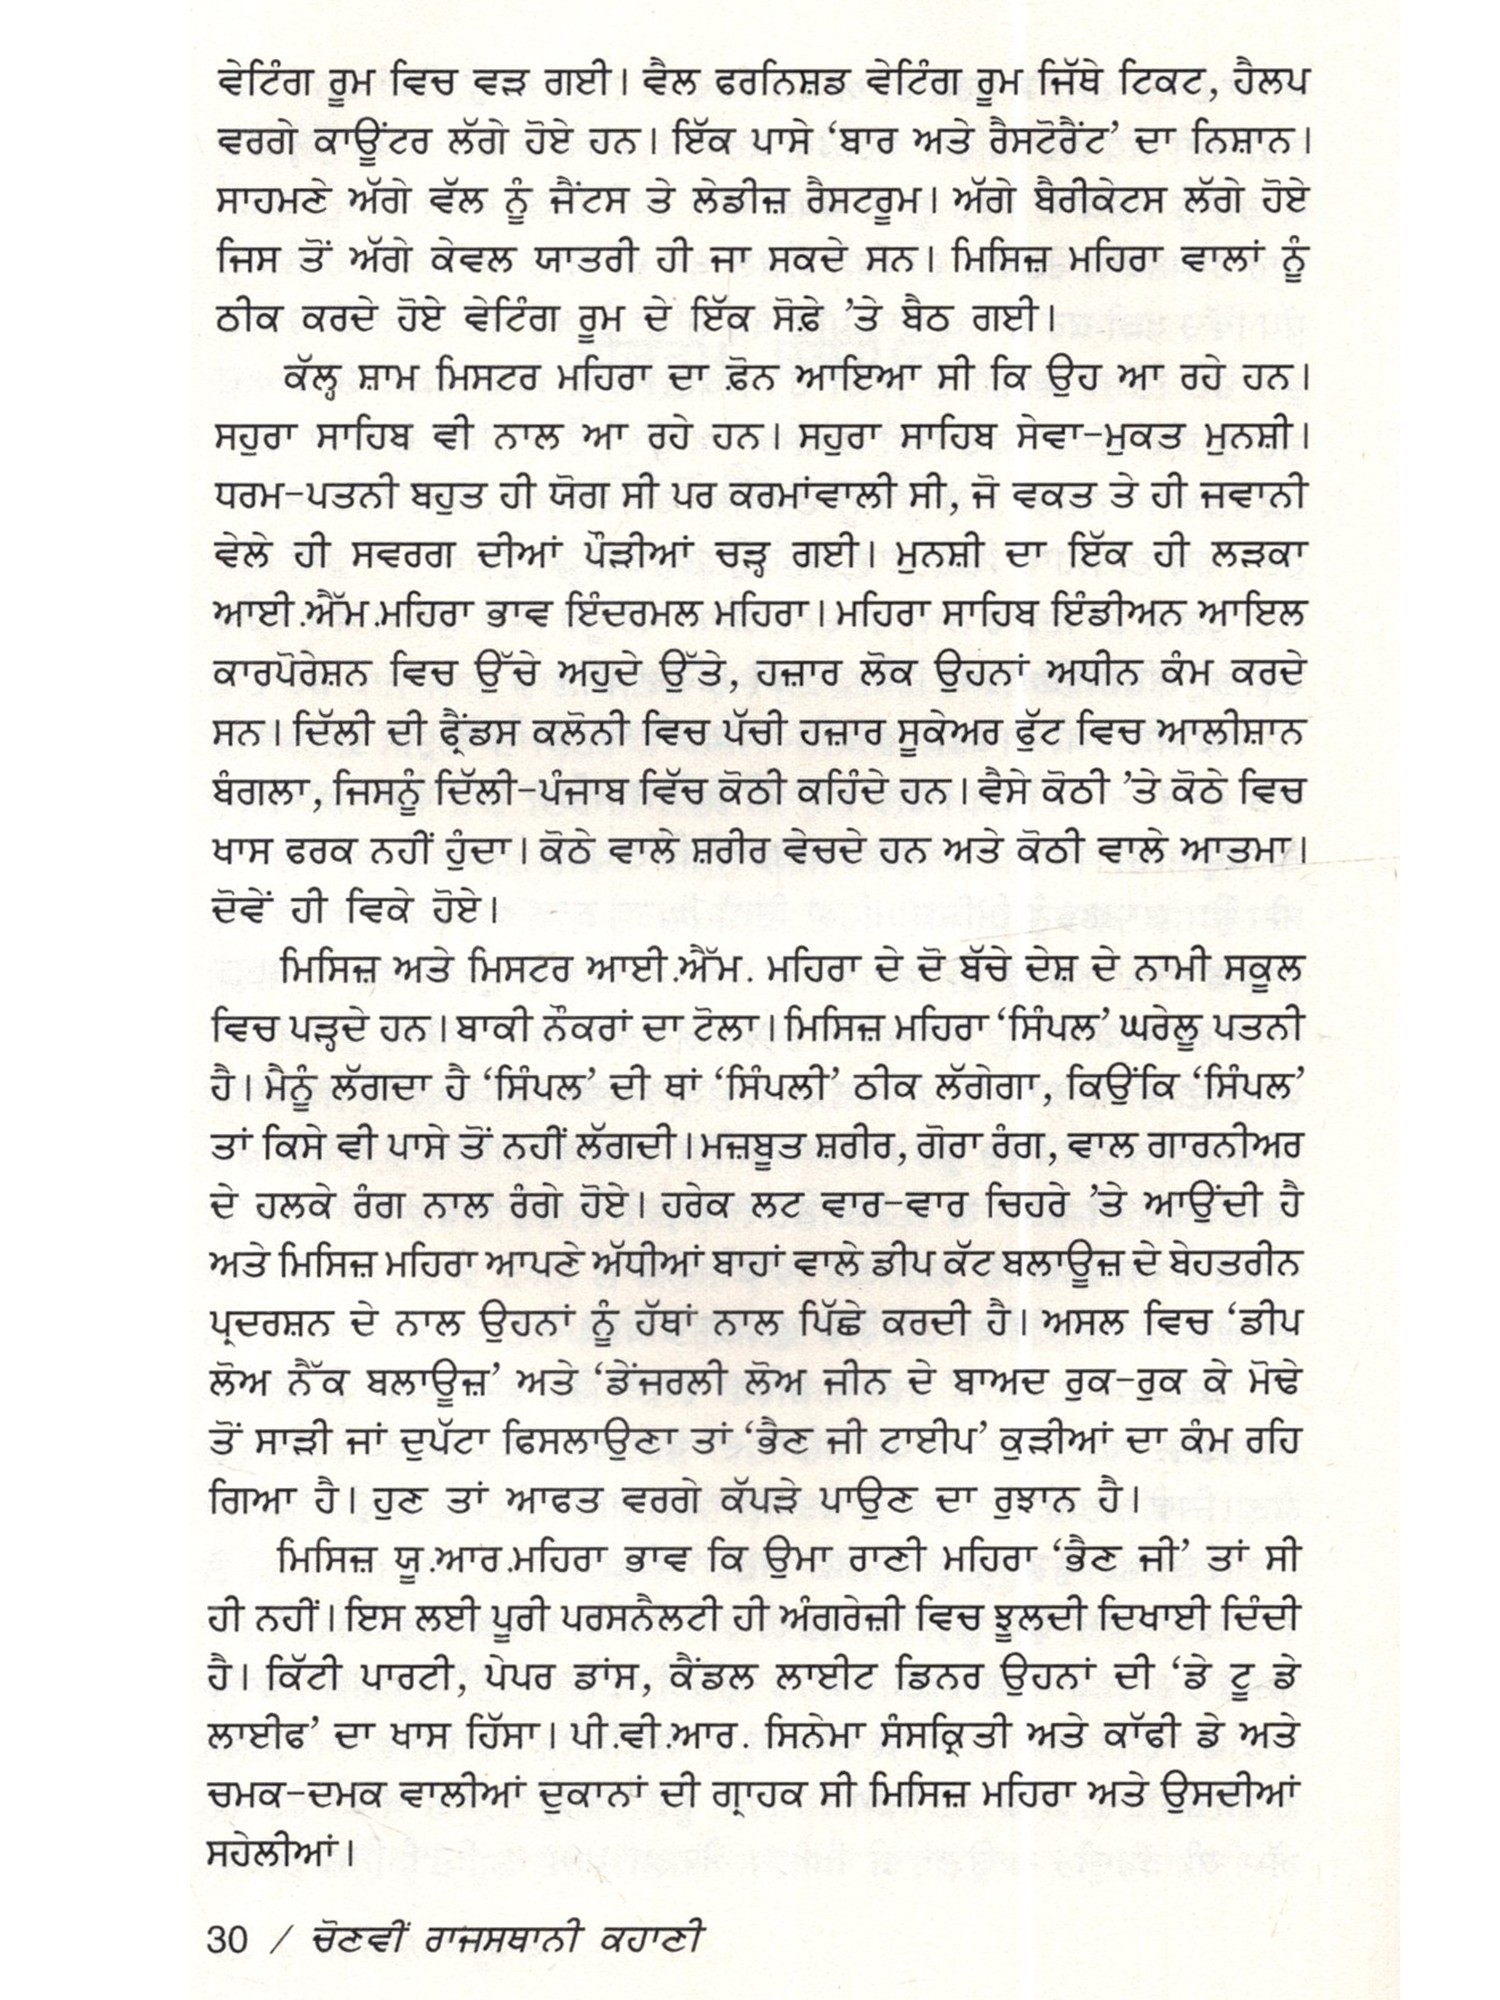 ਵੇਟਿੰਗ ਰੂਮ ਵਿਚ ਵੜ ਗਈ। ਵੈਲ ਫਰਨਿਸ਼ਡ ਵੇਟਿੰਗ ਰੂਮ ਜਿੱਥੇ ਟਿਕਟ, ਹੈਲਪ
ਵਰਗੇ ਕਾਊਂਟਰ ਲੱਗੇ ਹੋਏ ਹਨ। ਇੱਕ ਪਾਸੇ ‘ਬਾਰ ਅਤੇ ਰੈਸਟੋਰੈਂਟ’ ਦਾ ਨਿਸ਼ਾਨ।
ਸਾਹਮਣੇ ਅੱਗੇ ਵੱਲ ਨੂੰ ਜੈਂਟਸ ਤੇ ਲੇਡੀਜ਼ ਰੈਸਟਰੂਮ। ਅੱਗੇ ਬੈਰੀਕੇਟਸ ਲੱਗੇ ਹੋਏ
ਜਿਸ ਤੋਂ ਅੱਗੇ ਕੇਵਲ ਯਾਤਰੀ ਹੀ ਜਾ ਸਕਦੇ ਸਨ। ਮਿਸਿਜ਼ ਮਹਿਰਾ ਵਾਲਾਂ ਨੂੰ
ਠੀਕ ਕਰਦੇ ਹੋਏ ਵੇਟਿੰਗ ਰੂਮ ਦੇ ਇੱਕ ਸੋਫ਼ੇ ’ਤੇ ਬੈਠ ਗਈ।
ਕੱਲ੍ਹ ਸ਼ਾਮ ਮਿਸਟਰ ਮਹਿਰਾ ਦਾ ਫ਼ੋਨ ਆਇਆ ਸੀ ਕਿ ਉਹ ਆ ਰਹੇ ਹਨ।
ਸਹੁਰਾ ਸਾਹਿਬ ਵੀ ਨਾਲ ਆ ਰਹੇ ਹਨ। ਸਹੁਰਾ ਸਾਹਿਬ ਸੇਵਾ-ਮੁਕਤ ਮੁਨਸ਼ੀ।
ਧਰਮ-ਪਤਨੀ ਬਹੁਤ ਹੀ ਯੋਗ ਸੀ ਪਰ ਕਰਮਾਂਵਾਲੀ ਸੀ, ਜੋ ਵਕਤ ਤੇ ਹੀ ਜਵਾਨੀ
ਵੇਲੇ ਹੀ ਸਵਰਗ ਦੀਆਂ ਪੌੜੀਆਂ ਚੜ੍ਹ ਗਈ। ਮੁਨਸ਼ੀ ਦਾ ਇੱਕ ਹੀ ਲੜਕਾ
ਆਈ.ਐੱਮ.ਮਹਿਰਾ ਭਾਵ ਇੰਦਰਮਲ ਮਹਿਰਾ। ਮਹਿਰਾ ਸਾਹਿਬ ਇੰਡੀਅਨ ਆਇਲ
ਕਾਰਪੋਰੇਸ਼ਨ ਵਿਚ ਉੱਚੇ ਅਹੁਦੇ ਉੱਤੇ, ਹਜ਼ਾਰ ਲੋਕ ਉਹਨਾਂ ਅਧੀਨ ਕੰਮ ਕਰਦੇ
ਸਨ। ਦਿੱਲੀ ਦੀ ਫ੍ਰੈਂਡਸ ਕਲੋਨੀ ਵਿਚ ਪੱਚੀ ਹਜ਼ਾਰ ਸੂਕੇਅਰ ਫੁੱਟ ਵਿਚ ਆਲੀਸ਼ਾਨ
ਬੰਗਲਾ, ਜਿਸਨੂੰ ਦਿੱਲੀ-ਪੰਜਾਬ ਵਿੱਚ ਕੋਠੀ ਕਹਿੰਦੇ ਹਨ। ਵੈਸੇ ਕੋਠੀ ’ਤੇ ਕੋਠੇ ਵਿਚ
ਖਾਸ ਫਰਕ ਨਹੀਂ ਹੁੰਦਾ। ਕੋਠੇ ਵਾਲੇ ਸ਼ਰੀਰ ਵੇਚਦੇ ਹਨ ਅਤੇ ਕੋਠੀ ਵਾਲੇ ਆਤਮਾ।
ਦੋਵੇਂ ਹੀ ਵਿਕੇ ਹੋਏ।
ਮਿਸਿਜ਼ ਅਤੇ ਮਿਸਟਰ ਆਈ.ਐੱਮ. ਮਹਿਰਾ ਦੇ ਦੋ ਬੱਚੇ ਦੇਸ਼ ਦੇ ਨਾਮੀ ਸਕੂਲ
ਵਿਚ ਪੜ੍ਹਦੇ ਹਨ। ਬਾਕੀ ਨੌਕਰਾਂ ਦਾ ਟੋਲਾ। ਮਿਸਿਜ਼ ਮਹਿਰਾ ‘ਸਿੰਪਲ’ ਘਰੇਲੂ ਪਤਨੀ
ਹੈ। ਮੈਨੂੰ ਲੱਗਦਾ ਹੈ ‘ਸਿੰਪਲ’ ਦੀ ਥਾਂ ‘ਸਿੰਪਲੀ’ ਠੀਕ ਲੱਗੇਗਾ, ਕਿਉਂਕਿ ‘ਸਿੰਪਲ’
ਤਾਂ ਕਿਸੇ ਵੀ ਪਾਸੇ ਤੋਂ ਨਹੀਂ ਲੱਗਦੀ। ਮਜ਼ਬੂਤ ਸ਼ਰੀਰ, ਗੋਰਾ ਰੰਗ, ਵਾਲ ਗਾਰਨੀਅਰ
ਦੇ ਹਲਕੇ ਰੰਗ ਨਾਲ ਰੰਗੇ ਹੋਏ। ਹਰੇਕ ਲਟ ਵਾਰ-ਵਾਰ ਚਿਹਰੇ ’ਤੇ ਆਉਂਦੀ ਹੈ
ਅਤੇ ਮਿਸਿਜ਼ ਮਹਿਰਾ ਆਪਣੇ ਅੱਧੀਆਂ ਬਾਹਾਂ ਵਾਲੇ ਡੀਪ ਕੱਟ ਬਲਾਊਜ਼ ਦੇ ਬੇਹਤਰੀਨ
ਪ੍ਰਦਰਸ਼ਨ ਦੇ ਨਾਲ ਉਹਨਾਂ ਨੂੰ ਹੱਥਾਂ ਨਾਲ ਪਿੱਛੇ ਕਰਦੀ ਹੈ। ਅਸਲ ਵਿਚ ‘ਡੀਪ
ਲੋਅ ਨੈੱਕ ਬਲਾਊਜ਼’ ਅਤੇ ‘ਡੇਂਜਰਲੀ ਲੋਅ ਜੀਨ ਦੇ ਬਾਅਦ ਰੁਕ-ਰੁਕ ਕੇ ਮੋਢੇ
ਤੋਂ ਸਾੜੀ ਜਾਂ ਦੁਪੱਟਾ ਫਿਸਲਾਉਣਾ ਤਾਂ ‘ਭੈਣ ਜੀ ਟਾਈਪ’ ਕੁੜੀਆਂ ਦਾ ਕੰਮ ਰਹਿ
ਗਿਆ ਹੈ। ਹੁਣ ਤਾਂ ਆਫਤ ਵਰਗੇ ਕੱਪੜੇ ਪਾਉਣ ਦਾ ਰੁਝਾਨ ਹੈ।
ਮਿਸਿਜ਼ ਯੂ.ਆਰ.ਮਹਿਰਾ ਭਾਵ ਕਿ ਉਮਾ ਰਾਣੀ ਮਹਿਰਾ ‘ਭੈਣ ਜੀ’ ਤਾਂ ਸੀ
ਹੀ ਨਹੀਂ। ਇਸ ਲਈ ਪੂਰੀ ਪਰਸਨੈਲਟੀ ਹੀ ਅੰਗਰੇਜ਼ੀ ਵਿਚ ਝੂਲਦੀ ਦਿਖਾਈ ਦਿੰਦੀ
ਹੈ। ਕਿੱਟੀ ਪਾਰਟੀ, ਪੇਪਰ ਡਾਂਸ, ਕੈਂਡਲ ਲਾਈਟ ਡਿਨਰ ਉਹਨਾਂ ਦੀ ‘ਡੇ ਟੂ ਡੇ
ਲਾਈਫ’ ਦਾ ਖਾਸ ਹਿੱਸਾ। ਪੀ.ਵੀ.ਆਰ. ਸਿਨੇਮਾ ਸੰਸਕ੍ਰਿਤੀ ਅਤੇ ਕਾੱਫੀ ਡੇ ਅਤੇ
ਚਮਕ-ਦਮਕ ਵਾਲੀਆਂ ਦੁਕਾਨਾਂ ਦੀ ਗ੍ਰਾਹਕ ਸੀ ਮਿਸਿਜ਼ ਮਹਿਰਾ ਅਤੇ ਉਸਦੀਆਂ
ਸਹੇਲੀਆਂ।
30 / ਚੋਣਵੀਂ ਰਾਜਸਥਾਨੀ ਕਹਾਣੀ